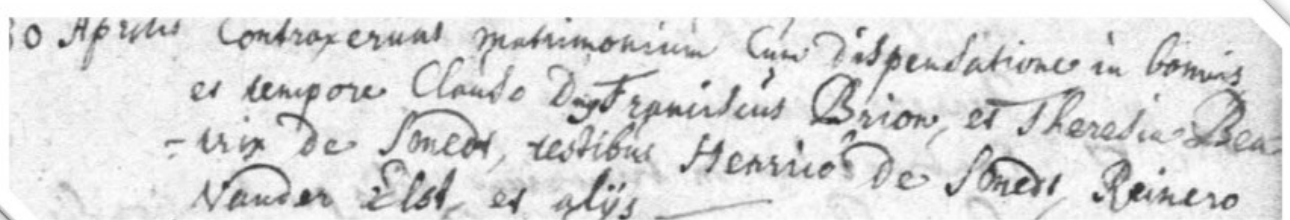 30 Aprilis Contraxerunt matrimonium Cum dispensatione in bannis
et tempore Clauso Dns Franciscus Brion, et Theresia Bea-
-trix De Smedt, testibus Henrico De Smedt, Reinero
Vander Elst, et alijs